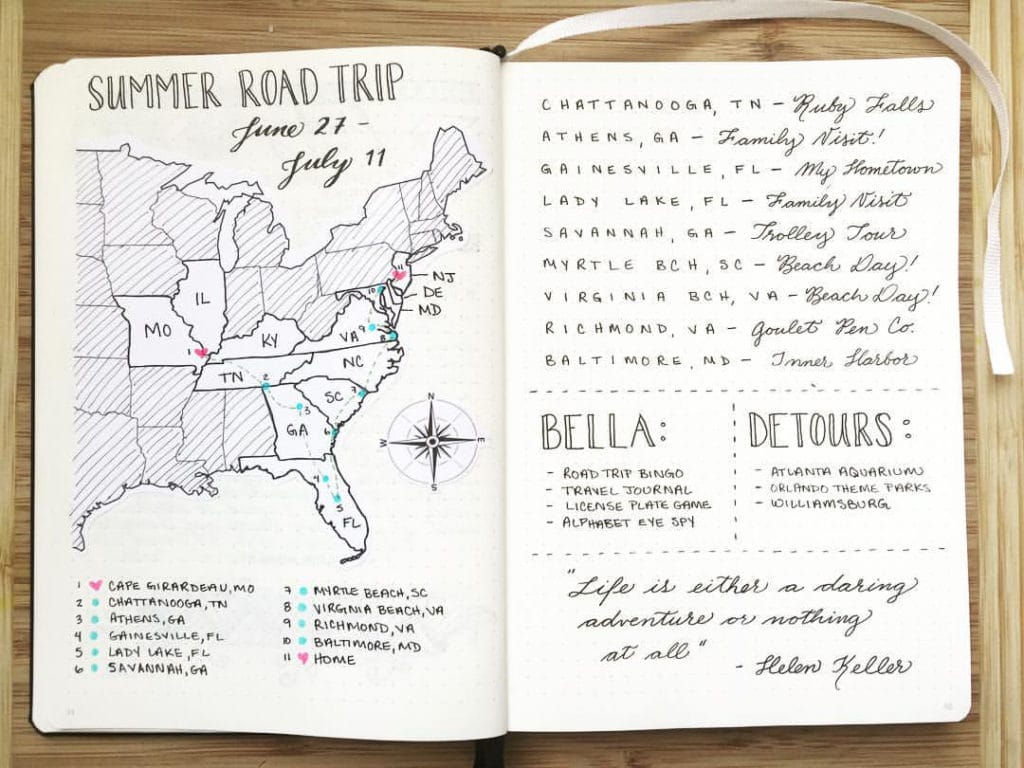 SUMMER ROAD TRIP
June 27 -
July 11
NJ
DE
MD
11
10
IL
MO
1
KY
VA
9
8
NC
TN
2
SC
7
3
GA
6
4
5
FL
N
W
E
S
1 ♥ CAPE GIRARDEAU, MO
2 • CHATTANOOGA, TN
3 • ATHENS, GA
4 • GAINESVILLE, FL
5 • LADY LAKE, FL
6 • SAVANNAH, GA
7 • MYRTLE BEACH, SC
8 • VIRGINIA BEACH, VA
9 • RICHMOND, VA
10 • BALTIMORE, MD
11 ♥ HOME
CHATTANOOGA, TN - Ruby Falls
ATHENS, GA - Family Visit!
GAINESVILLE, FL - My Hometown
LADY LAKE, FL - Family Visit
SAVANNAH, GA - Trolley Tour
MYRTLE BCH, SC - Beach Day!
VIRGINIA BCH, VA - Beach Day!
RICHMOND, VA - Goulet Pen Co.
BALTIMORE, MD - Inner Harbor
BELLA:
- ROAD TRIP BINGO
- TRAVEL JOURNAL
- LICENSE PLATE GAME
- ALPHABET EYE SPY
DETOURS:
- ATLANTA AQUARIUM
- ORLANDO THEME PARKS
- WILLIAMSBURG
"Life is either a daring
adventure or nothing
at all"
- Helen Keller